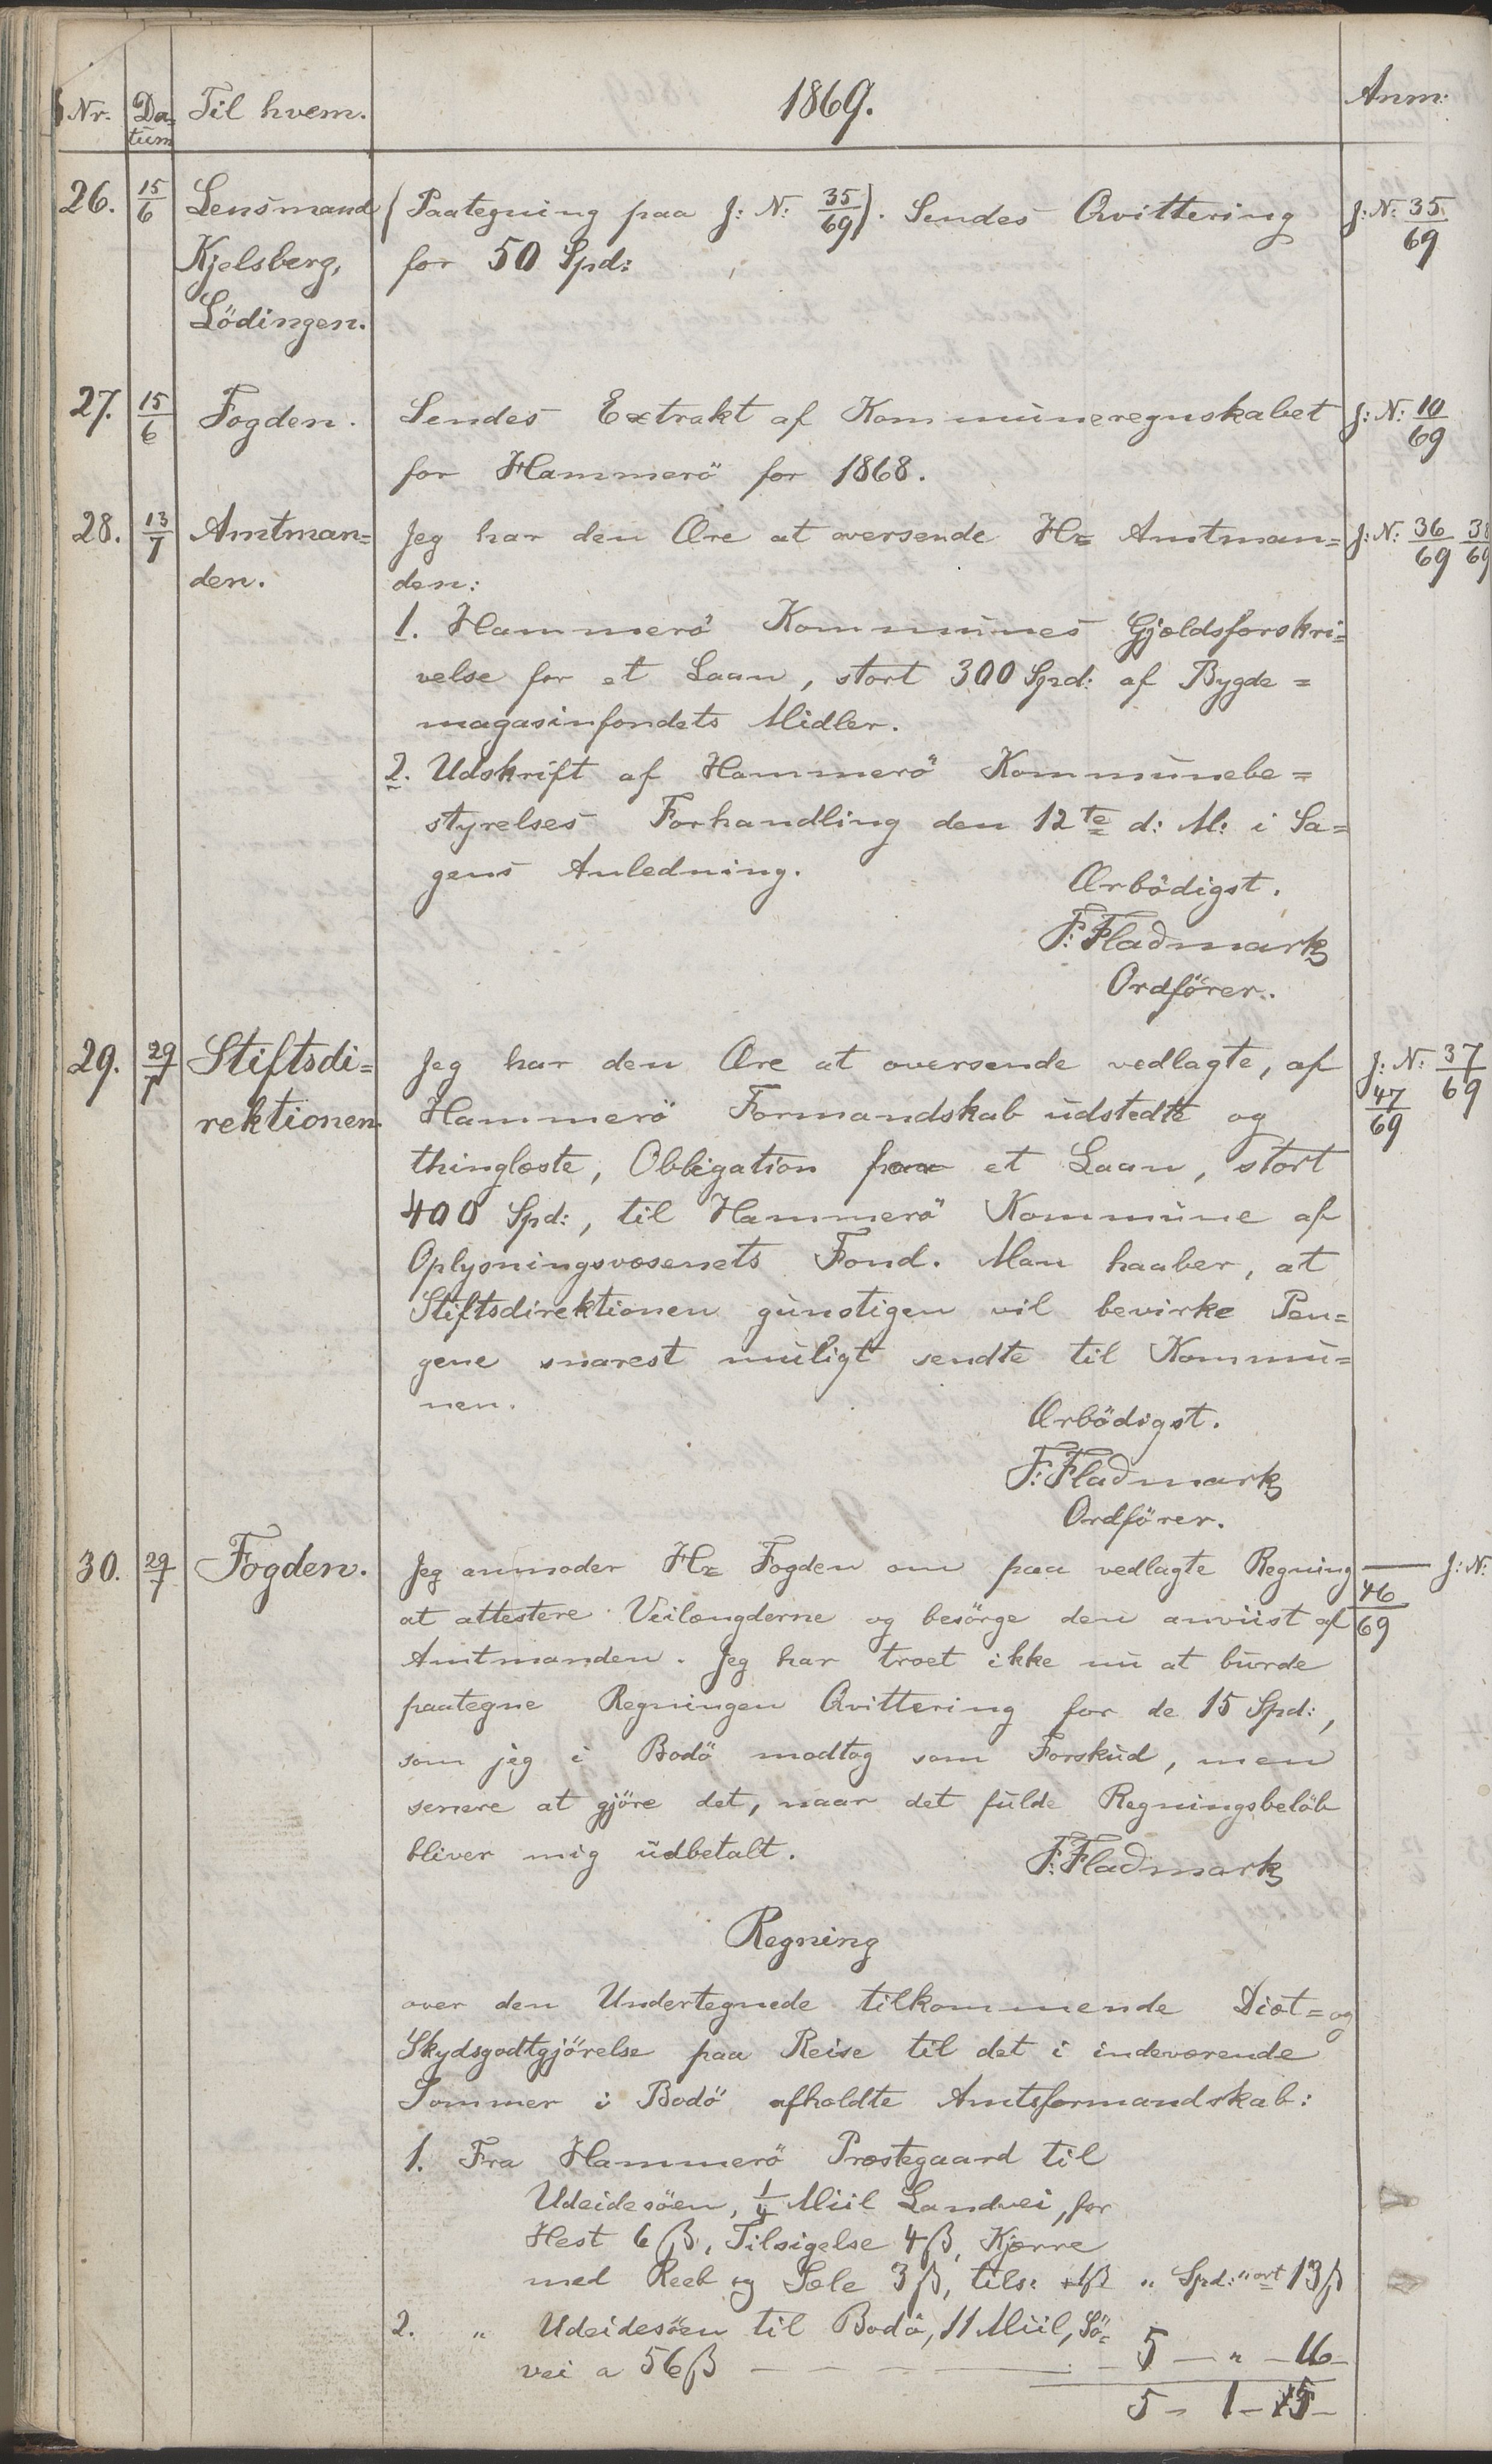 Nr. Da= Til hvem. 1869. Anm:
tum
26. 15/6 Lensmand (Paategning paa J: N: 35/69). Sendes Qvittering J: N: 35/69
Kjelsberg, for 50 Spd:
Lödingen.
27. 15/6 Fogden. Sendes Extrakt af Kommuneregnskabet J: N: 10/69
for Hammerö for 1868.
28. 13/7 Amtman= Jeg har den Ære at oversende Hr. Amtman= J: N: 36/69 38/69
den. den:
1. Hammerö Kommunes Gjældsforskri=
velse for et Laan, stort 300 Spd: af Bygde=
magasinfondets Midler.
2. Udskrift af Hammerö Kommunebe=
styrelses Forhandling den 12te d: M: i Sa=
gens Anledning.
Ærbödigst.
F: Fladmark
Ordförer.
29. 29/7 Stiftsdi= Jeg har den Ære at oversende vedlagte, af J: N: 37/69
rektionen. Hammerö Formandskab udstedte og 47/69
thinglæste, Obligation for et Laan, stort
400 Spd:, til Hammerö Kommune af
Oplysningsvæsenets Fond. Man haaber, at
Stiftsdirektionen gunstigen vil bevirke Pen=
gene snarest muligt sendte til Kommu=
nen.
Ærbödigst.
F: Fladmark
Ordförer.
30. 29/7 Fogden. Jeg anmoder Hr. Fogden om paa vedlagte Regning — J: N:
at attestere Veilængderne og besörge den anviist af 46/69
Amtmanden. Jeg har troet ikke nu at burde
paategne Regningen Qvittering for de 15 Spd:,
som jeg i Bodö modtog som Forskud, men
senere at gjöre det, naar det fulde Regningsbelöb
bliver mig udbetalt.
F: Fladmark
Regning
over den Undertegnede tilkommende Diæt= og
Skydsgodtgjörelse paa Reise til det i indeværende
Sommer i Bodö afholdte Amtsformandskab:
1. Fra Hammerö Præstegaard til
Udeidesöen, 1/4 Miil Landvei, for
Hest 6 ß, Tilsigelse 4 ß, Kjærre
med Reeb og Sæle 3 ß, tils: " Spd: " ort 13 ß
2. " Udeidesöen til Bodö, 11 Miil, Sö=
vei a 56 ß — — — 5 — " — 16 —
5 — 1 — 5 —